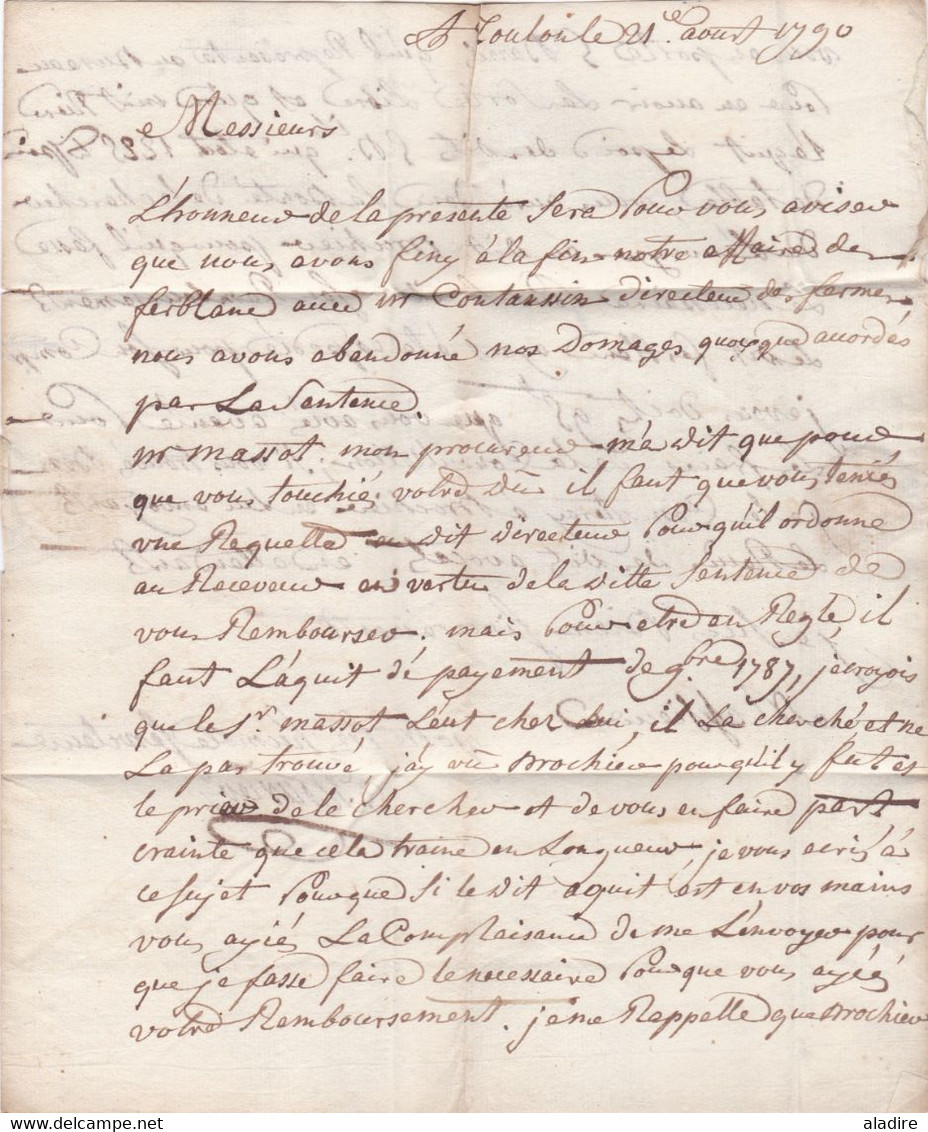 A Toulon le 21e. aoust 1790
Messieurs
L'honneur de la presente Sera Pour vous aviser
que nous avons finy à la fin notre affaire de
ferblanc avec mr Coutaussin directeur des fermes
nous avons abandonné nos Domages quoyque acordés
par La Santence.
mr massot mon procureur m'a dit que pour
que vous touchiés votre du il faut que vous teniés
une Requette au dit directeur Pour qu'il ordonne
au Receveur en vertu de la ditte Sentence de
vous Rembourser. mais Pour etre en Regle, il
faut L'aquit de payement de 9bre 1787, je croyois
que le Sr. massot L'eut cher Lui, il La cherché et ne
La pas trouvé, j'ay vu Brochier pour qu'il y fut et
le prier de le chercher et de vous en faire part
crainte que cela traine en Longueur, je vous ecris à
ce sujet Pour que Si le dit aquit est en vos mains
vous ayiés La Complaisance de me L'envoyer pour
que je fasse faire le necessaire Pour que vous ayiés
votre Remboursement. je me Rappelle que Brochier
aladire